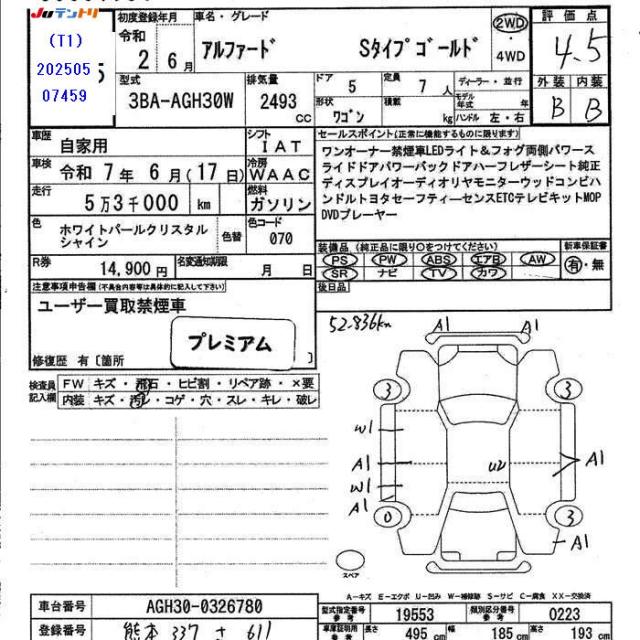 JUテントリ
(T1)
202505
07459
初度登録年月
令和
2 6月
車名・グレード
アルファード Sタイプゴールド
2WD
・
4WD
評価点
4.5
外装 内装
B B
型式
3BA-AGH30W
排気量
2493
CC
ドア
5
定員
7 人
形状
ワゴン
積載
kg
ディーラー・並行
モデル年式 年
ハンドル 左・右
車歴
自家用
シフト
IAT
車検
令和 7年 6月(17日)
冷房
WAAC
走行
5万3千000 km
燃料
ガソリン
色
ホワイトパールクリスタル
シャイン
色替
色コード
070
R券
14,900円
名変通知期限
月 日
セールスポイント(正常に機能するものに限ります)
ワンオーナー禁煙車LEDライト&フォグ両側パワース
ライドドアパワーバックドアハーフレザーシート純正
ディスプレイオーディオリヤモニターウッドコンビハ
ンドルトヨタセーフティーセンスETCテレビキットMOP
DVDプレーヤー
装備品(純正品に限り○をつけてください)
PS PW ABS エアB AW
SR ナビ TV カワ
新車保証書
有・無
後日品
注意事項申告欄(不具合内容等は具体的に記入して下さい)
ユーザー買取禁煙車
プレミアム
修復歴 有〔箇所 〕
検査員
記入欄
FW キズ・飛石・ヒビ割・リペア跡・×要
内装 キズ・汚レ・コゲ・穴・スレ・キレ・破レ
52.836km
A1 A1
3 3
W1
A1 U2 A1
W1
A1
0 3
A1
スペア
A-キズ E-エクボ U-凹み W-補修跡 S-サビ C-腐食 XX-交換済
車台番号
AGH30-0326780
型式指定番号
参考
19553
類別区分番号
参考
0223
登録番号
熊本 337 さ 611
車庫証明用
参考
長さ
495 cm
幅
185 cm
高さ
193 cm